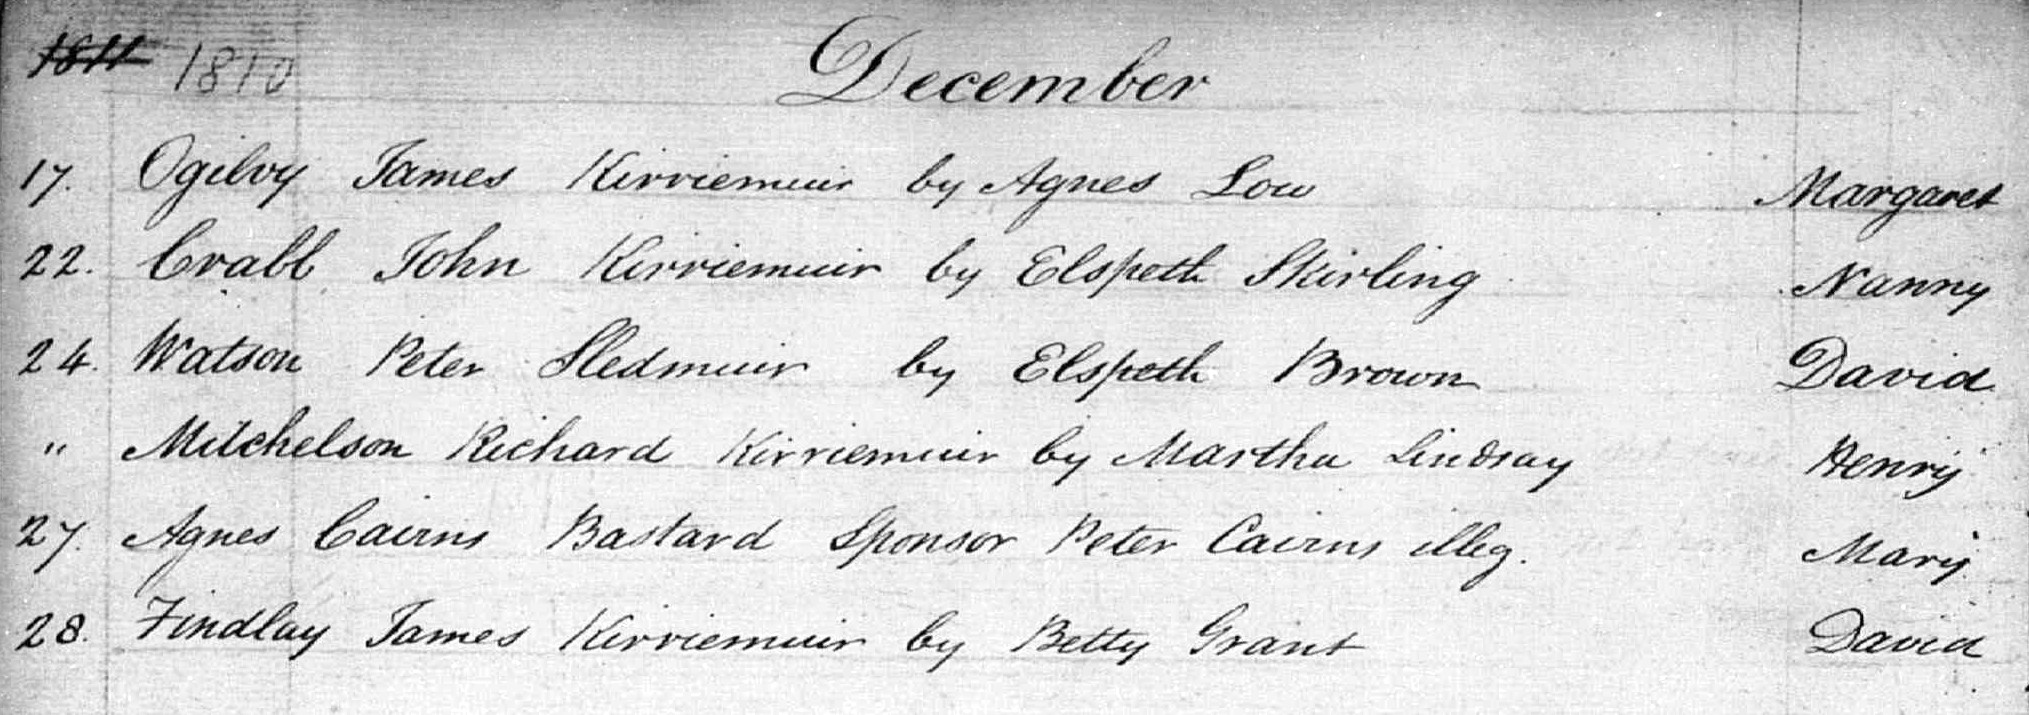 1811 1810 December
17. Ogilvy James Kirriemuir by Agnes Low Margaret
22. Crabb John Kirriemuir by Elspeth Skirling Nanny
24. Watson Peter Sledmuir by Elspeth Brown David
" Mitchelson Richard Kirriemuir by Martha Lindsay Henry
27. Agnes Cairns Bastard Sponsor Peter Cairns illeg. Mary
28. Findlay James Kirriemuir by Betty Grant David